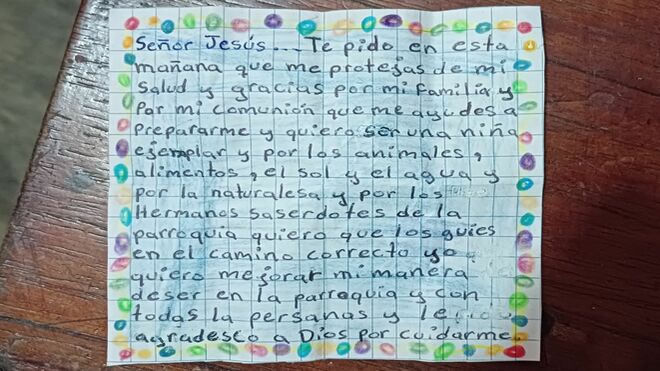 Señor Jesús... Te pido en esta
mañana que me protejas de mi
salud y gracias por mi familia y
por mi comunión que me ayudes a
prepararme y quiero ser una niña
ejemplar y por los animales,
alimentos, el sol y el agua y
por la naturalesa y por los
Hermanos saserdotes de la
parroquia quiero que los guies
en el camino correcto yo
quiero mejorar mi manera
deser en la parroquia y con
todas la personas y
agradesco a Dios por cuidarme.